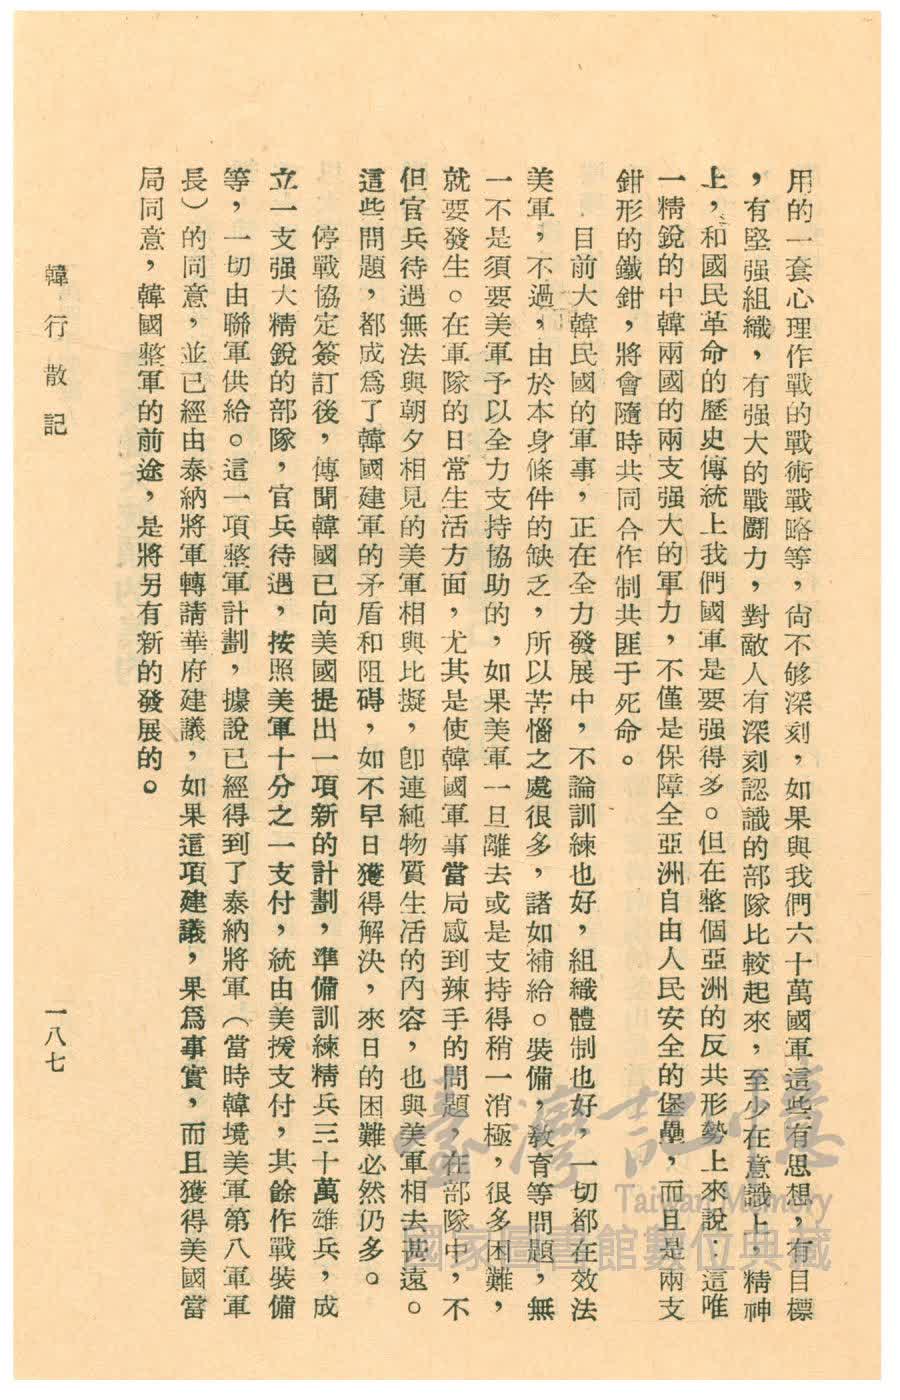 用的一套心理作戰的戰術戰略等，尙不够深刻，如果與我們六十萬國軍這些有思想，有目標
，有堅强組織，有强大的戰鬭力，對敵人有深刻認識的部隊比較起來，至少在意識上，精神
上，和國民革命的歷史傳統上我們國軍是要强得多。但在整個亞洲的反共形勢上來說：這唯
一精銳的中韓兩國的兩支强大的軍力，不僅是保障全亞洲自由人民安全的堡壘，而且是兩支
鉗形的鐵鉗，將會隨時共同合作制共匪于死命。
目前大韓民國的軍事，正在全力發展中，不論訓練也好，組織體制也好，一切都在效法
美軍，不過，由於本身條件的缺乏，所以苦惱之處很多，諸如補給。裝備，敎育等問題，無
一不是須要美軍予以全力支持協助的，如果美軍一旦離去或是支持得稍一消極，很多困難，
就要發生。在軍隊的日常生活方面，尤其是使韓國軍事當局感到辣手的問題，在部隊中，不
但官兵待遇無法與朝夕相見的美軍相與比擬，卽連純物質生活的內容，也與美軍相去甚遠。
這些問題，都成爲了韓國建軍的矛盾和阻碍，如不早日獲得解決，來日的困難必然仍多。
停戰協定簽訂後，傳聞韓國已向美國提出一項新的計劃，準備訓練精兵三十萬雄兵，成
立一支强大精銳的部隊，官兵待遇，按照美軍十分之一支付，統由美援支付，其餘作戰裝備
等，一切由聯軍供給。這一項整軍計劃，據說已經得到了泰納將軍（當時韓境美軍第八軍軍
長）的同意，並已經由泰納將軍轉請華府建議，如果這項建議，果爲事實，而且獲得美國當
局同意，韓國整軍的前途，是將另有新的發展的。
韓行散記
一八七
臺灣記憶
Taiwan Memory
國家圖書館數位典藏